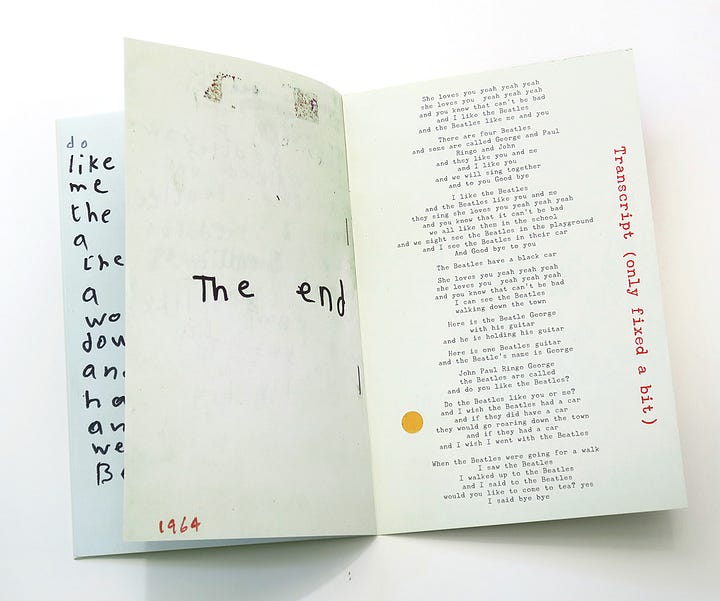 do
like
me
the
a
the
a
wo
dow
an
ha
an
we
Be
The end
1964
She loves you yeah yeah yeah
she loves you yeah yeah yeah
and you know that can't be bad
and I like the Beatles
and the Beatles like me and you
There are four Beatles
and some are called George and Paul
Ringo and John
and they like you and me
and I like you
and we will sing together
and to you Good bye
I like the Beatles
and the Beatles like you and me
they sing she loves you yeah yeah yeah
and you know that it can't be bad
we all like them in the school
and we might see the Beatles in the playground
and I see the Beatles in their car
And Good bye to you
The Beatles have a black car
She loves you yeah yeah yeah
she loves you yeah yeah yeah
and you know that can't be bad
I can see the Beatles
walking down the town
Here is the Beatle George
with his guitar
and he is holding his guitar
Here is one Beatles guitar
and the Beatle's name is George
John Paul Ringo George
the Beatles are called
and do you like the Beatles?
Do the Beatles like you or me?
and I wish the Beatles had a car
and if they did have a car
they would go roaring down the town
and if they had a car
and I wish I went with the Beatles
When the Beatles were going for a walk
I saw the Beatles
I walked up to the Beatles
and I said to the Beatles
would you like to come to tea? yes
I said bye bye
Transcript (only fixed a bit)